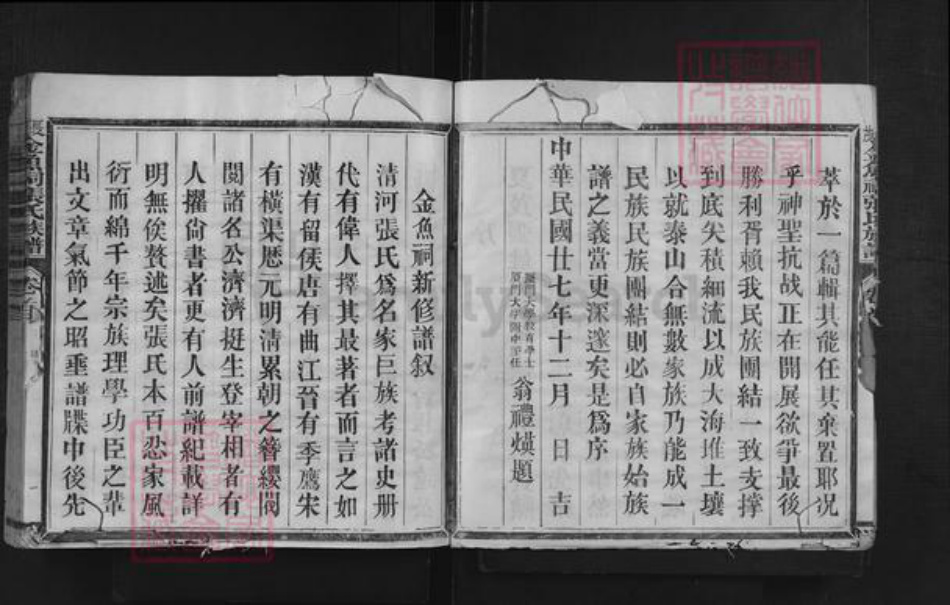 萃於一篇輯其能任其棄置耶况
乎神聖抗战正在開展欲爭最後
勝利胥賴我民族團結一致支撐
到底矢積細流以成大海堆土壤
以就泰山合無數家族乃能成一
民族民族團結則必自家族始族
譜之義當更深邃矣是爲序
厦門大學教育學士
厦門大學附中主任
翁禮煐題
中華民國廿七年十二月 日 吉
金魚祠新修譜叙
清河張氏爲名家巨族考諸史册
代有偉人擇其最著者而言之如
漢有留侯唐有曲江晉有季鷹宋
有橫渠歷元明清累朝之簪纓閥
閱諸名公濟濟挺生登宰相者有
人擢尚書者更有人前譜紀載詳
明無俟贅述矣張氏本百忍家風
衍而綿千年宗族理學功臣之輩
出文章氣節之昭垂譜牒中後先